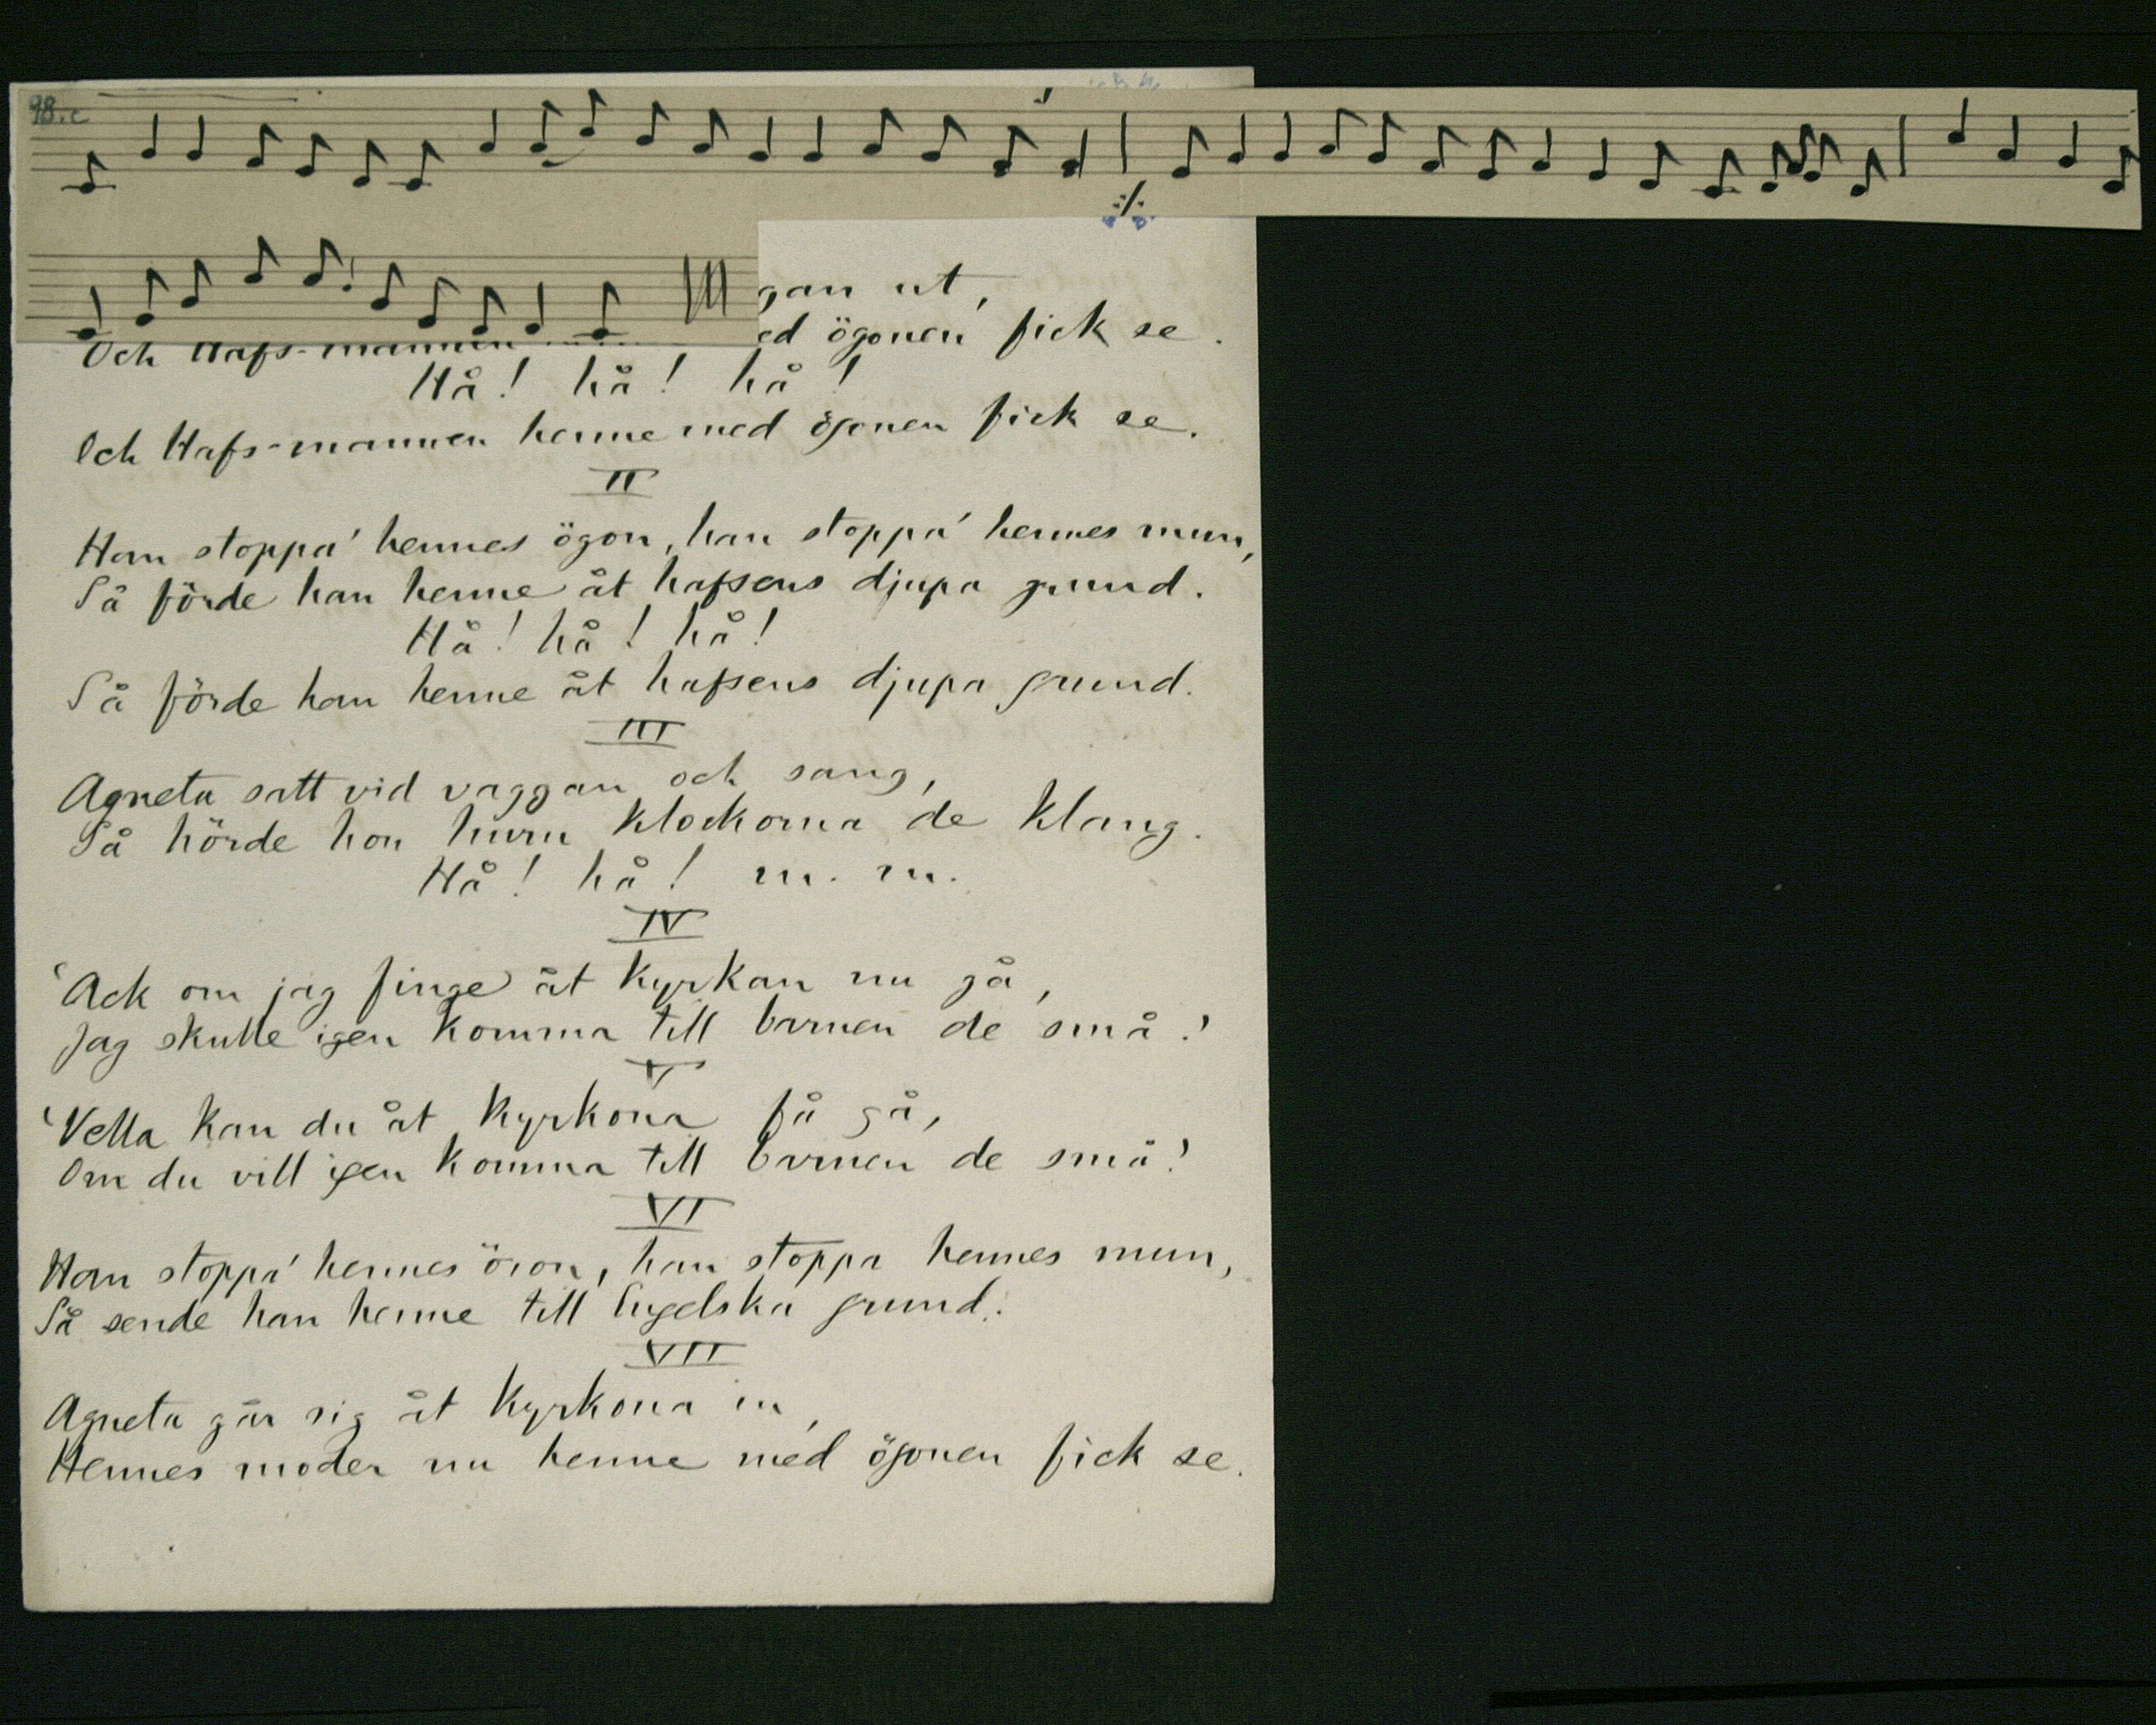 98.c
gan ut,
Och Hafs-mannen ed ögonen fick se.
Hå! hå! hå!
Och Hafs-mannen henne med ögonen fick se.
II
Han stoppa' hennes ögon, han stoppa' hennes mun,
Så förde han henne åt hafsens djupa grund.
Hå! hå! hå!
Så förde han henne åt hafsens djupa grund.
III
Agneta satt vid vaggan och sang,
Så hörde hon huru klockorna de klang.
Hå! hå! m. m.
IV
'Ack om jag finge åt kyrkan nu gå,
Jag skulle igen komma till barnen de små.'
V
'Vella kan du åt kyrkona få gå,
Om du vill igen komma till barnen de små!'
VI
Han stoppa' hennes öron, han stoppa hennes mun,
Så sende han henne till Engelska grund.
VII
Agneta går sig åt kyrkona in,
Hennes moder nu henne med ögonen fick se.